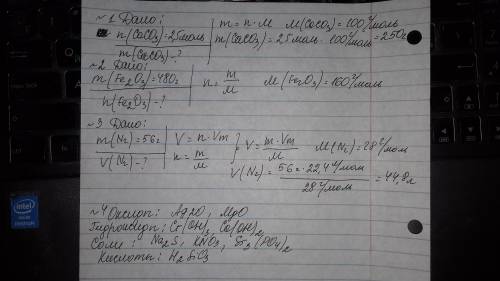 ~1 Дано:
n(CaCO3)=25моль
m(CaCO3)-?
m=n·M M(CaCO3)=100г/моль
m(CaCO3)=25моль·100г/моль=250г
~2 Дано:
m(Fe2O3)=480г
n(Fe2O3)-?
n=m/M M(Fe2O3)=160г/моль
~3 Дано:
m(N2)=56г
V(N2)-?
V=n·Vm
n=m/M
V=m·Vm/M M(N2)=28г/мол
V(N2)=56г·22,4г/моль/28г/моль=44,8л
~4 Оксиды: Ag2O, MgO
Гидроксиды: Cr(OH)3, Co(OH)2
Соли: Na2S, KNO3, Sr3(PO4)2
Кислоты: H2SiO3
intel
inside